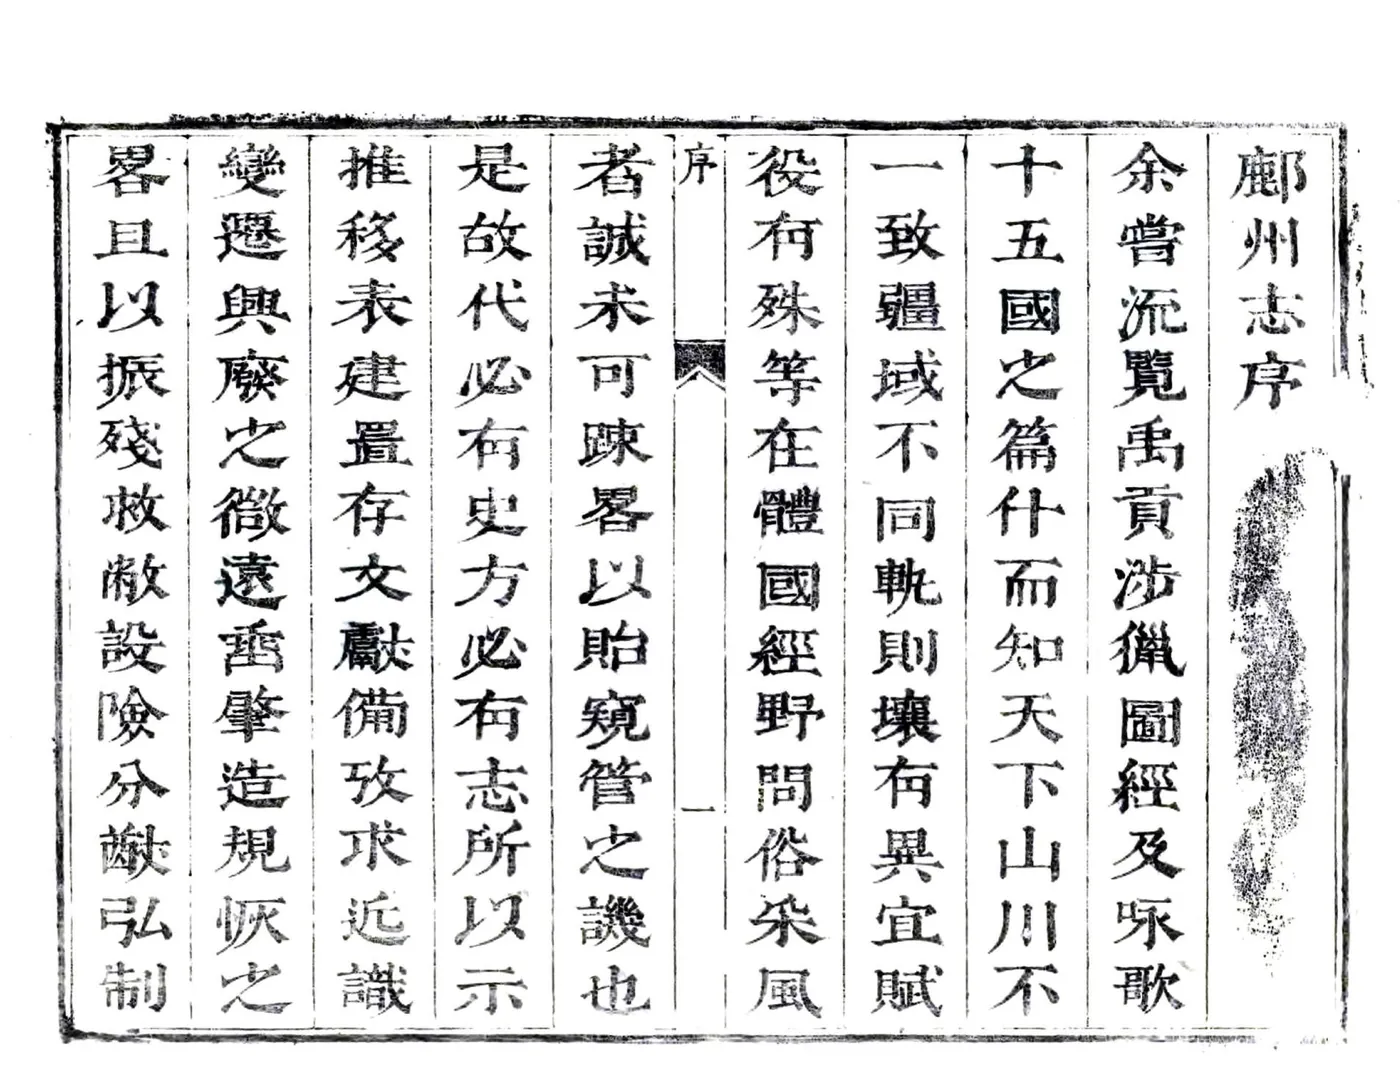 鄜州志序
余嘗流覽禹貢涉獵圖經及咏歌
十五國之篇什而知天下山川不
一致疆域不同軌則壤有異宜賦
役有殊等在體國經野問俗采風
序
一
者誠未可疎畧以貽窺管之譏也
是故代必有史方必有志所以示
推移表建置存文獻備攷求近識
變遷興廢之微遠畱肇造規恢之
畧且以振殘救敝設險分猷弘制